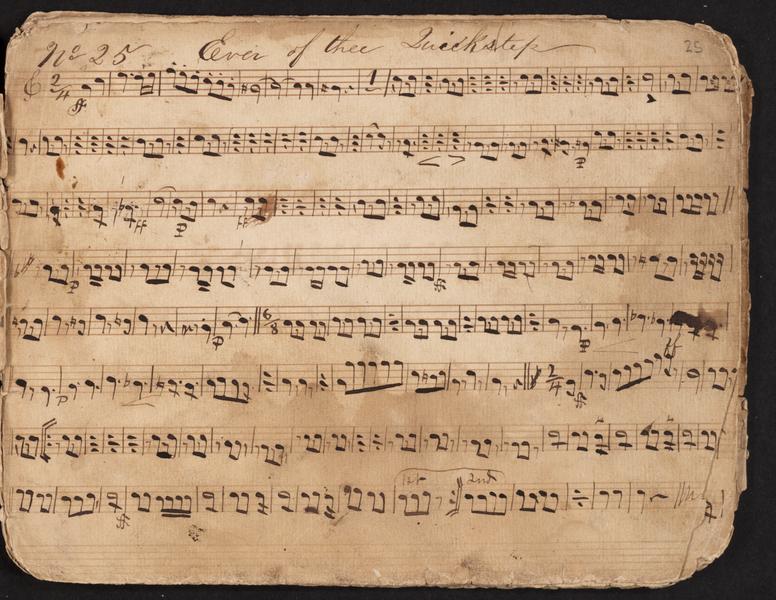 No 25 Ever of thee Quickstep 25
2/4 ff 1
p
ff p ff
p ff
6/8 p p ff
p 2/4 ff
1st 2nd
ff